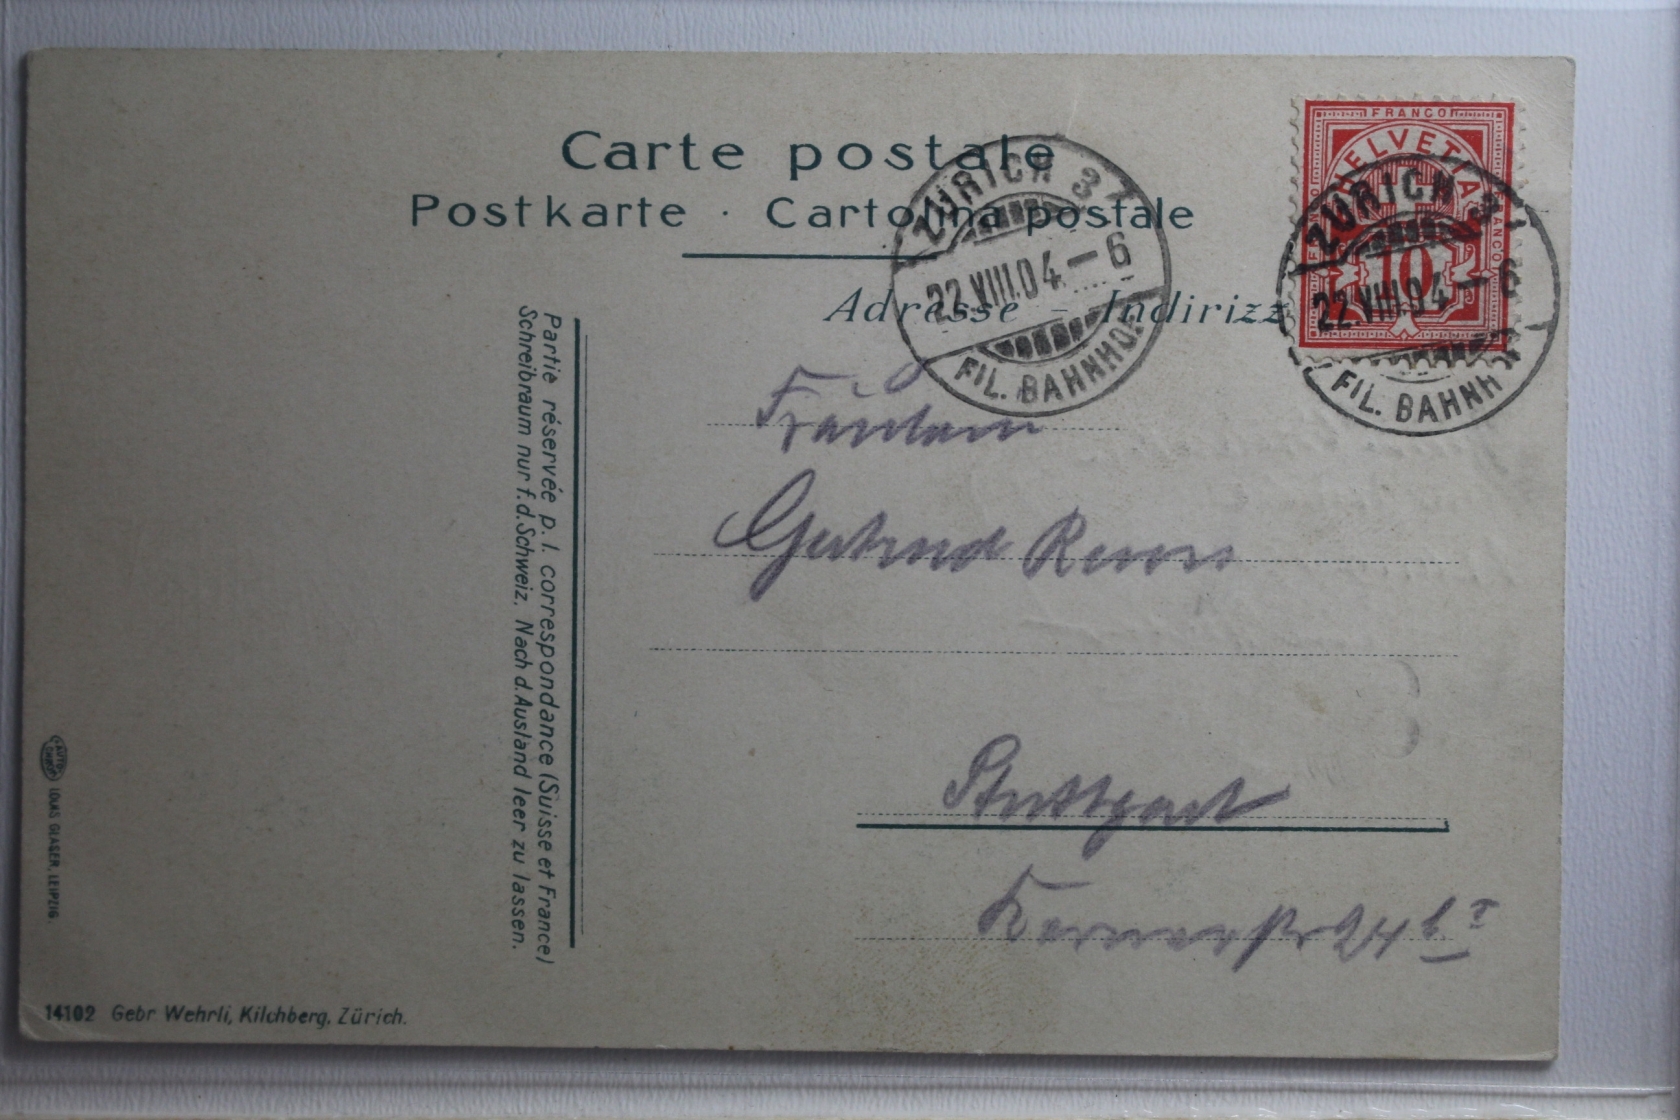 Carte postale
Postkarte · Cartolina postale
Adresse - Indirizz
FRANCO
HELVETIA
10
ZÜRICH 3
22.VIII.04-6
FIL. BAHNHOF
ZÜRICH 3
22.VIII.04-6
FIL. BAHNH
Partie réservée p. l. correspondance (Suisse et France)
Schreibraum nur f. d. Schweiz. Nach d. Ausland leer zu lassen.
Fräulein
Gertrud
Stuttgart
Kernerstr 24 b I
LOUIS GLASER, LEIPZIG.
14102 Gebr Wehrli, Kilchberg, Zürich.